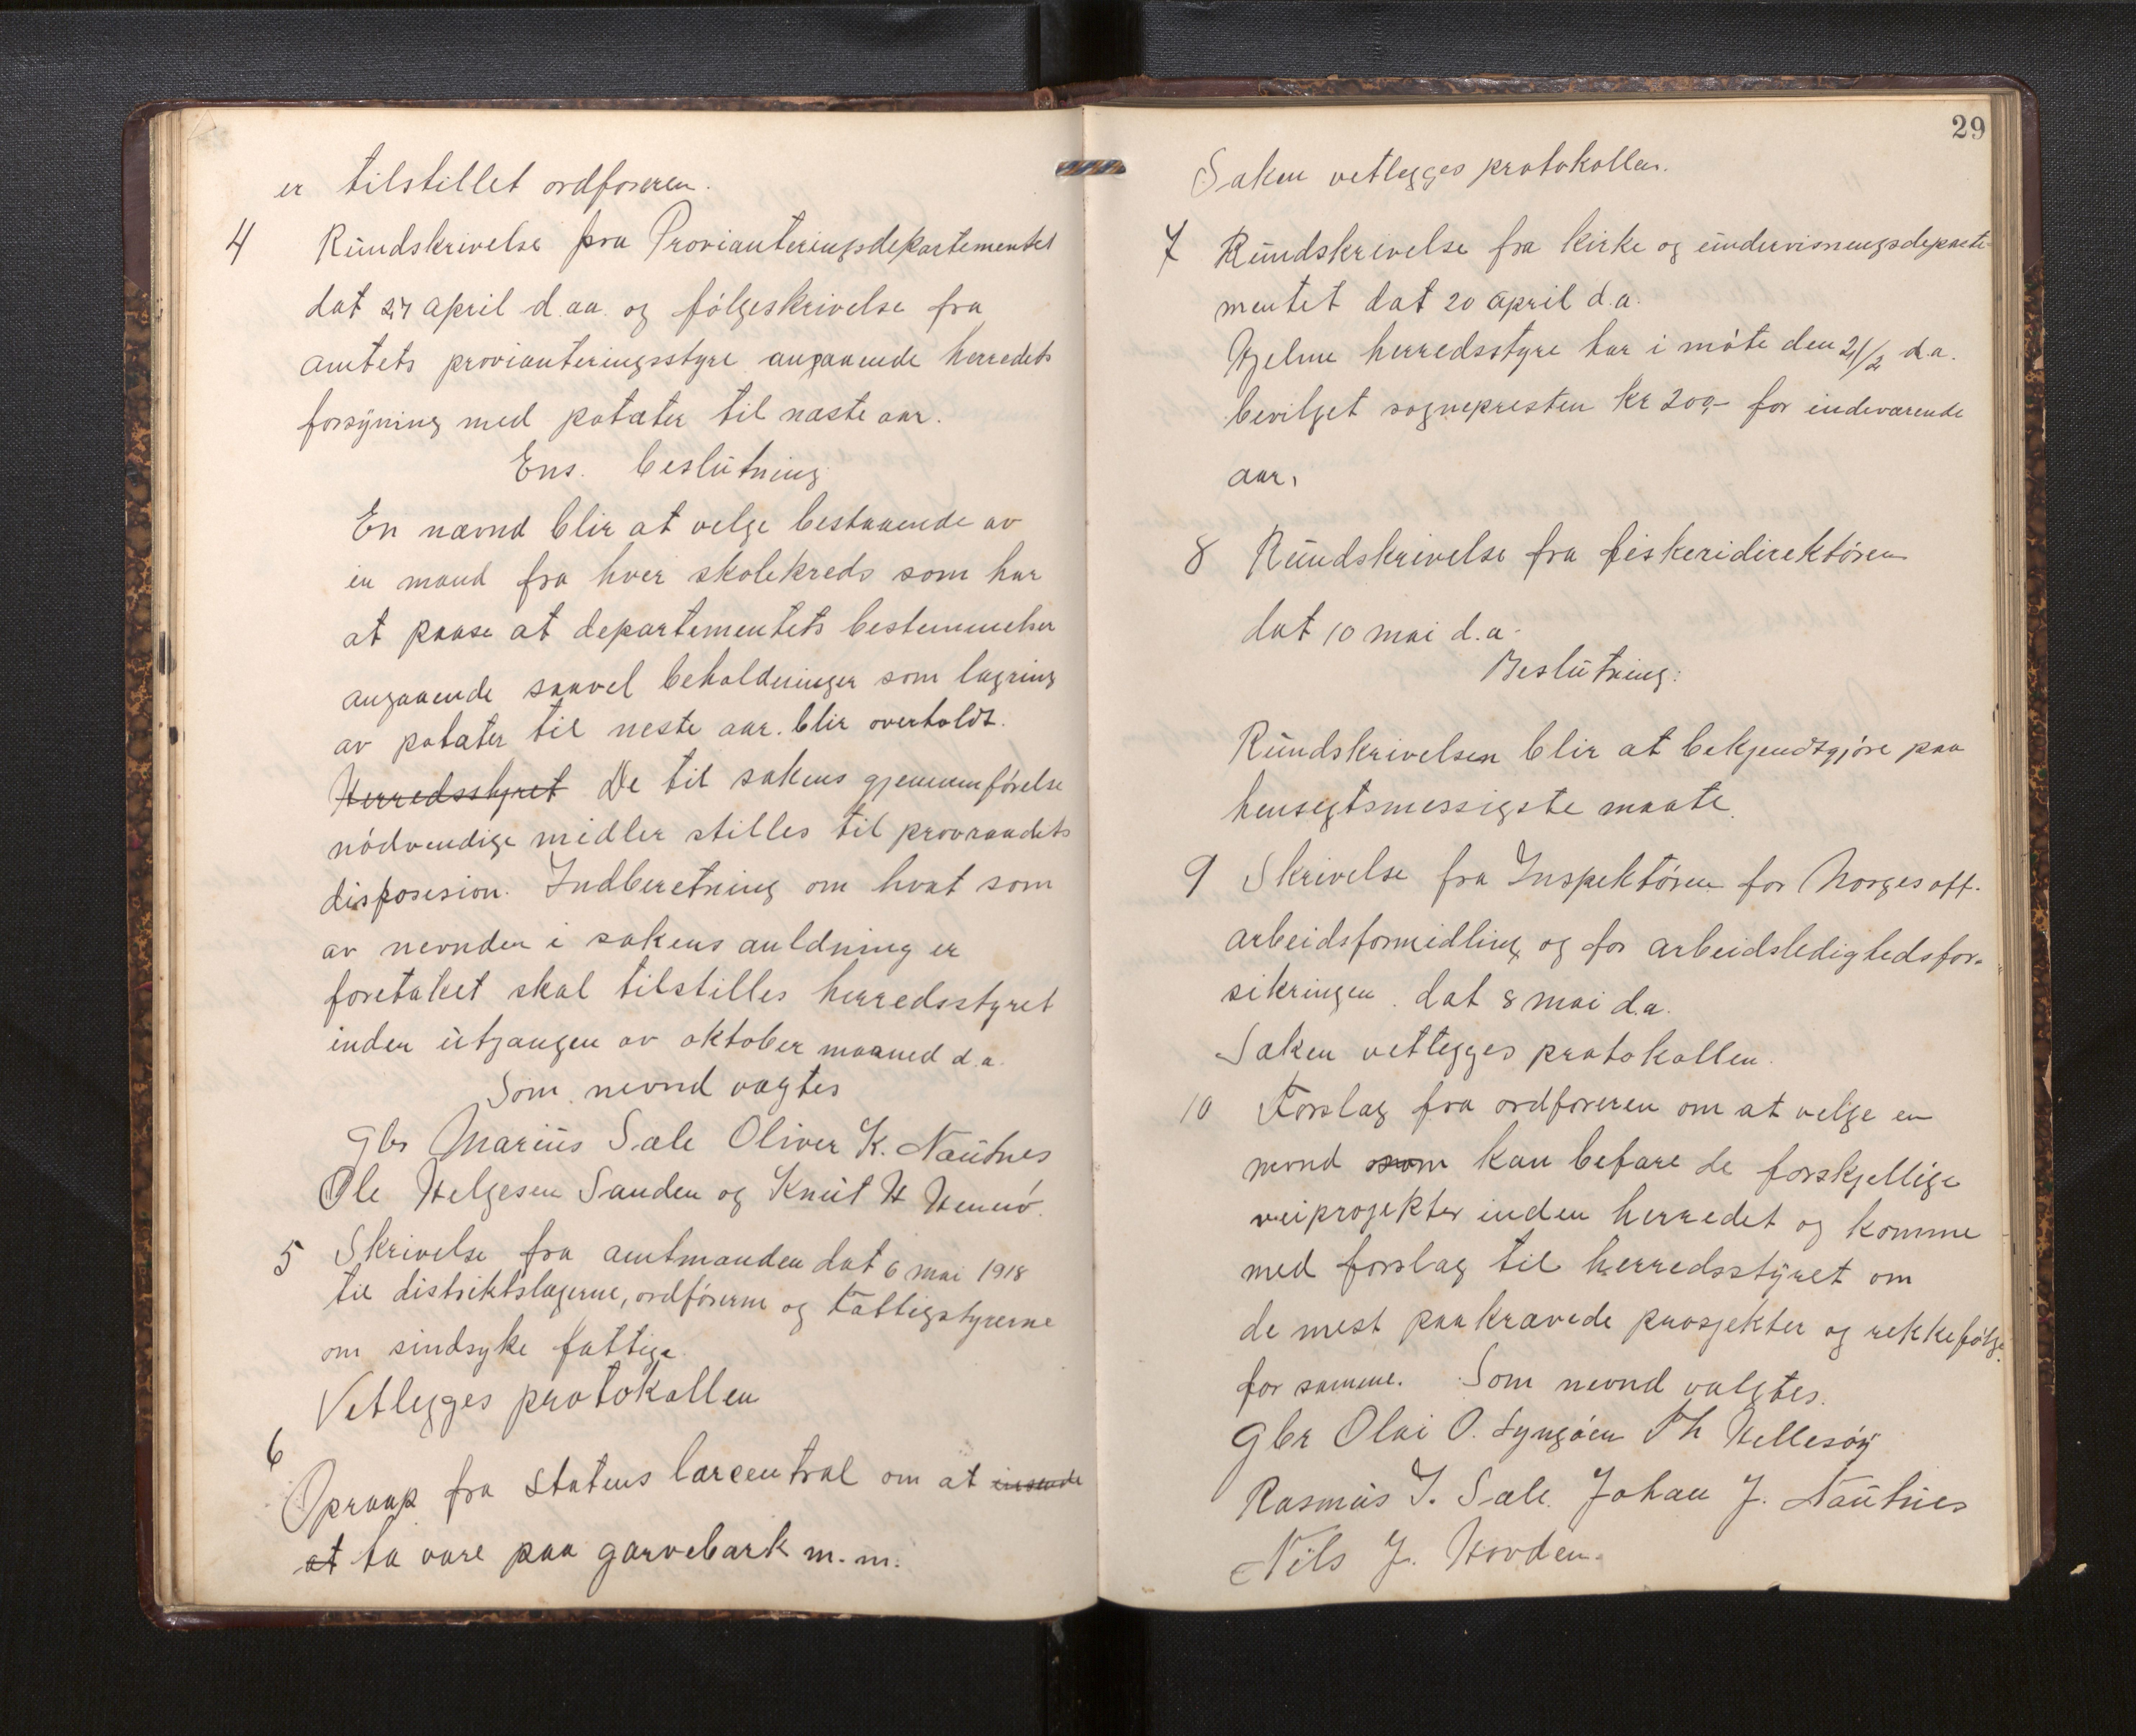 er tilstillet ordføreren.
4 Rundskrivelse fra Provianteringsdepartementet
dat 27 april d.aa. og følgeskrivelse fra
amtets provianteringsstyre angaaende herredets
forsyning med potæter til næste aar.
Ens. beslutning
En nævnd blir at velge bestaaende av
en mand fra hver skolekreds som har
at paase at departementets bestemmelser
angaaende saavel beholdninger som lagring
av potæter til neste aar. blir overholdt.
Herredsstyret De til sakens gjennemførelse
nödvendige midler stilles til provraadets
disposision. Indberetning om hvat som
av nevnden i sakens anldning er
foretaket skal tilstilles herredsstyret
inden utgangen av oktober maaned d.a.
Som nevnd valgtes
Gbr Marius Sæle Oliver K. Nautnes
Ole Helgesen Sanden og Knut H Hennö.
5 Skrivelse fra amtmanden dat 6 mai 1918
til distriktslægerne, ordförerne og Fattigstyrerne
om sindsyke fattige.
Vetlegges protokollen
6
Opraap fra Statens lærcentral om at insende
at ta vare paa garvebark m.m.
29
Saken vetlegges protokollen.
7 Rundskrivelse fra kirke og undervisningsdeparte-
mentet dat 20 april d.a.
Hjelme herredsstyre har i möte den 21/2 d.a.
bevilget sognepresten kr 200,- for indeværende
aar.
8 Rundskrivelse fra fiskeridirektören
dat 10 mai d.a.
Beslutning:
Rundskrivelsen blir at bekjendtgjöre paa
hensegtsmessigste maate.
9 Skrivelse fra Inspektören for Norges off.
arbeidsformidling og for arbeidsledighedsfor-
sikringen dat 8 mai d.a.
Saken vetlegges protokollen.
10 Forslag fra ordföreren om at velge en
nevnd som kan befare de forskjellige
veiprojekter inden herredet og komme
med forslag til herredsstyret om
de mest paakrævede prosjekter og rekkefölge
for samme. Som nevnd valgtes.
Gbr Olai O. Lyngöen Th Hellesöy
Rasmus I. Sæle. Johan J. Nautnes
Nils J. Hovden.